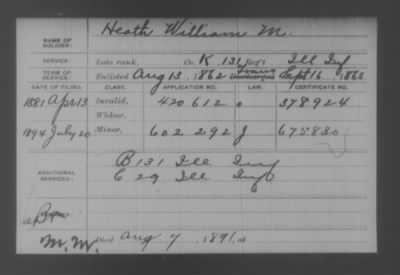 NAME OF SOLDIER: Heath William M.
SERVICE: Late rank, Co. K, 131 Reg't Ill Inf
TERM OF SERVICE: Enlisted Aug 13, 1862 Trans Sept 16, 1863
DATE OF FILING. CLASS. APPLICATION NO. LAW. CERTIFICATE NO.
1881 Apr 13 Invalid, 420 612 378924
Widow,
1894 July 20 Minor, 602 292 J 675830
ADDITIONAL SERVICES: B 131 Ill Inf
C 29 Ill Inf
M.M. Died Aug 7, 1891, at